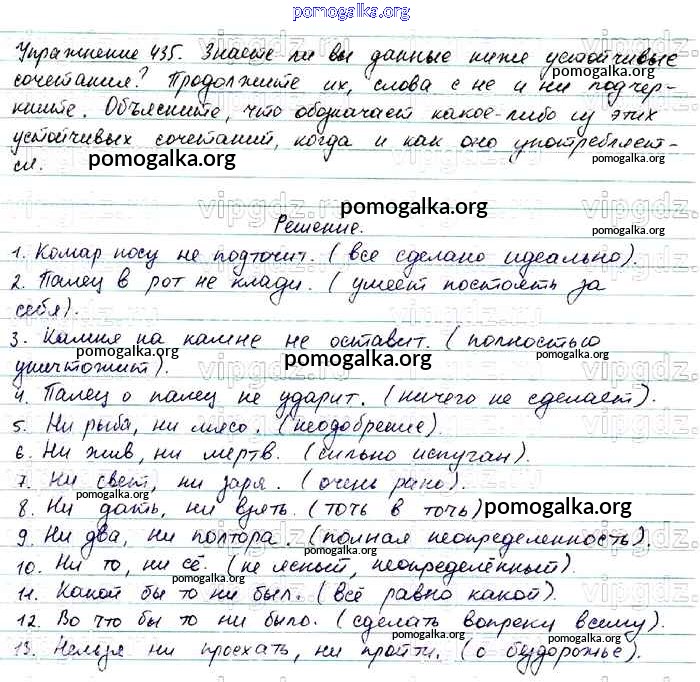 pomogalka.org
Упражнение 435. Знаете ли вы данные ниже устойчивые
сочетания? Продолжите их, слова с не и ни подчер-
кните. Объясните, что обозначает какое-либо из этих
устойчивых сочетаний, когда и как оно употребляет-
ся.
Решение.
1. Комар носу не подточит. (все сделано идеально).
2. Палец в рот не клади. (умеет постоять за
себя).
3. Камня на камне не оставит. (полностью
уничтожит).
4. Палец о палец не ударит. (ничего не сделает).
5. Ни рыба, ни мясо. (неодобрение).
6. Ни жив, ни мертв. (сильно испуган).
7. Ни свет, ни заря. (очень рано).
8. Ни дать, ни взять. (точь в точь)
9. Ни два, ни полтора. (полная неопределенность).
10. Ни то, ни сё. (не ясный, неопределённый).
11. Какой бы то ни был. (всё равно какой).
12. Во что бы то ни было. (сделать вопреки всему).
13. Нельзя ни проехать, ни пройти. (о бездорожье).